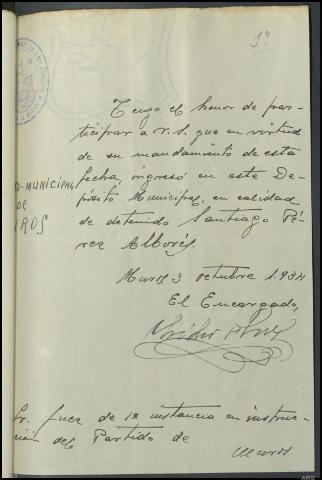 19
Tengo el honor de par-
ticipar a V.S. que en virtud
de su mandamiento de esta
fecha, ingresó en este De-
pósito Municipal, en calidad
de detenido Santiago Pé-
rez Alborés.
O-MUNICIPAL
DE
ROS
Muros 3 octubre 1.934
El Encargado,
Sr. Juez de 1ª instancia en instruc-
ción del Partido de
Muros